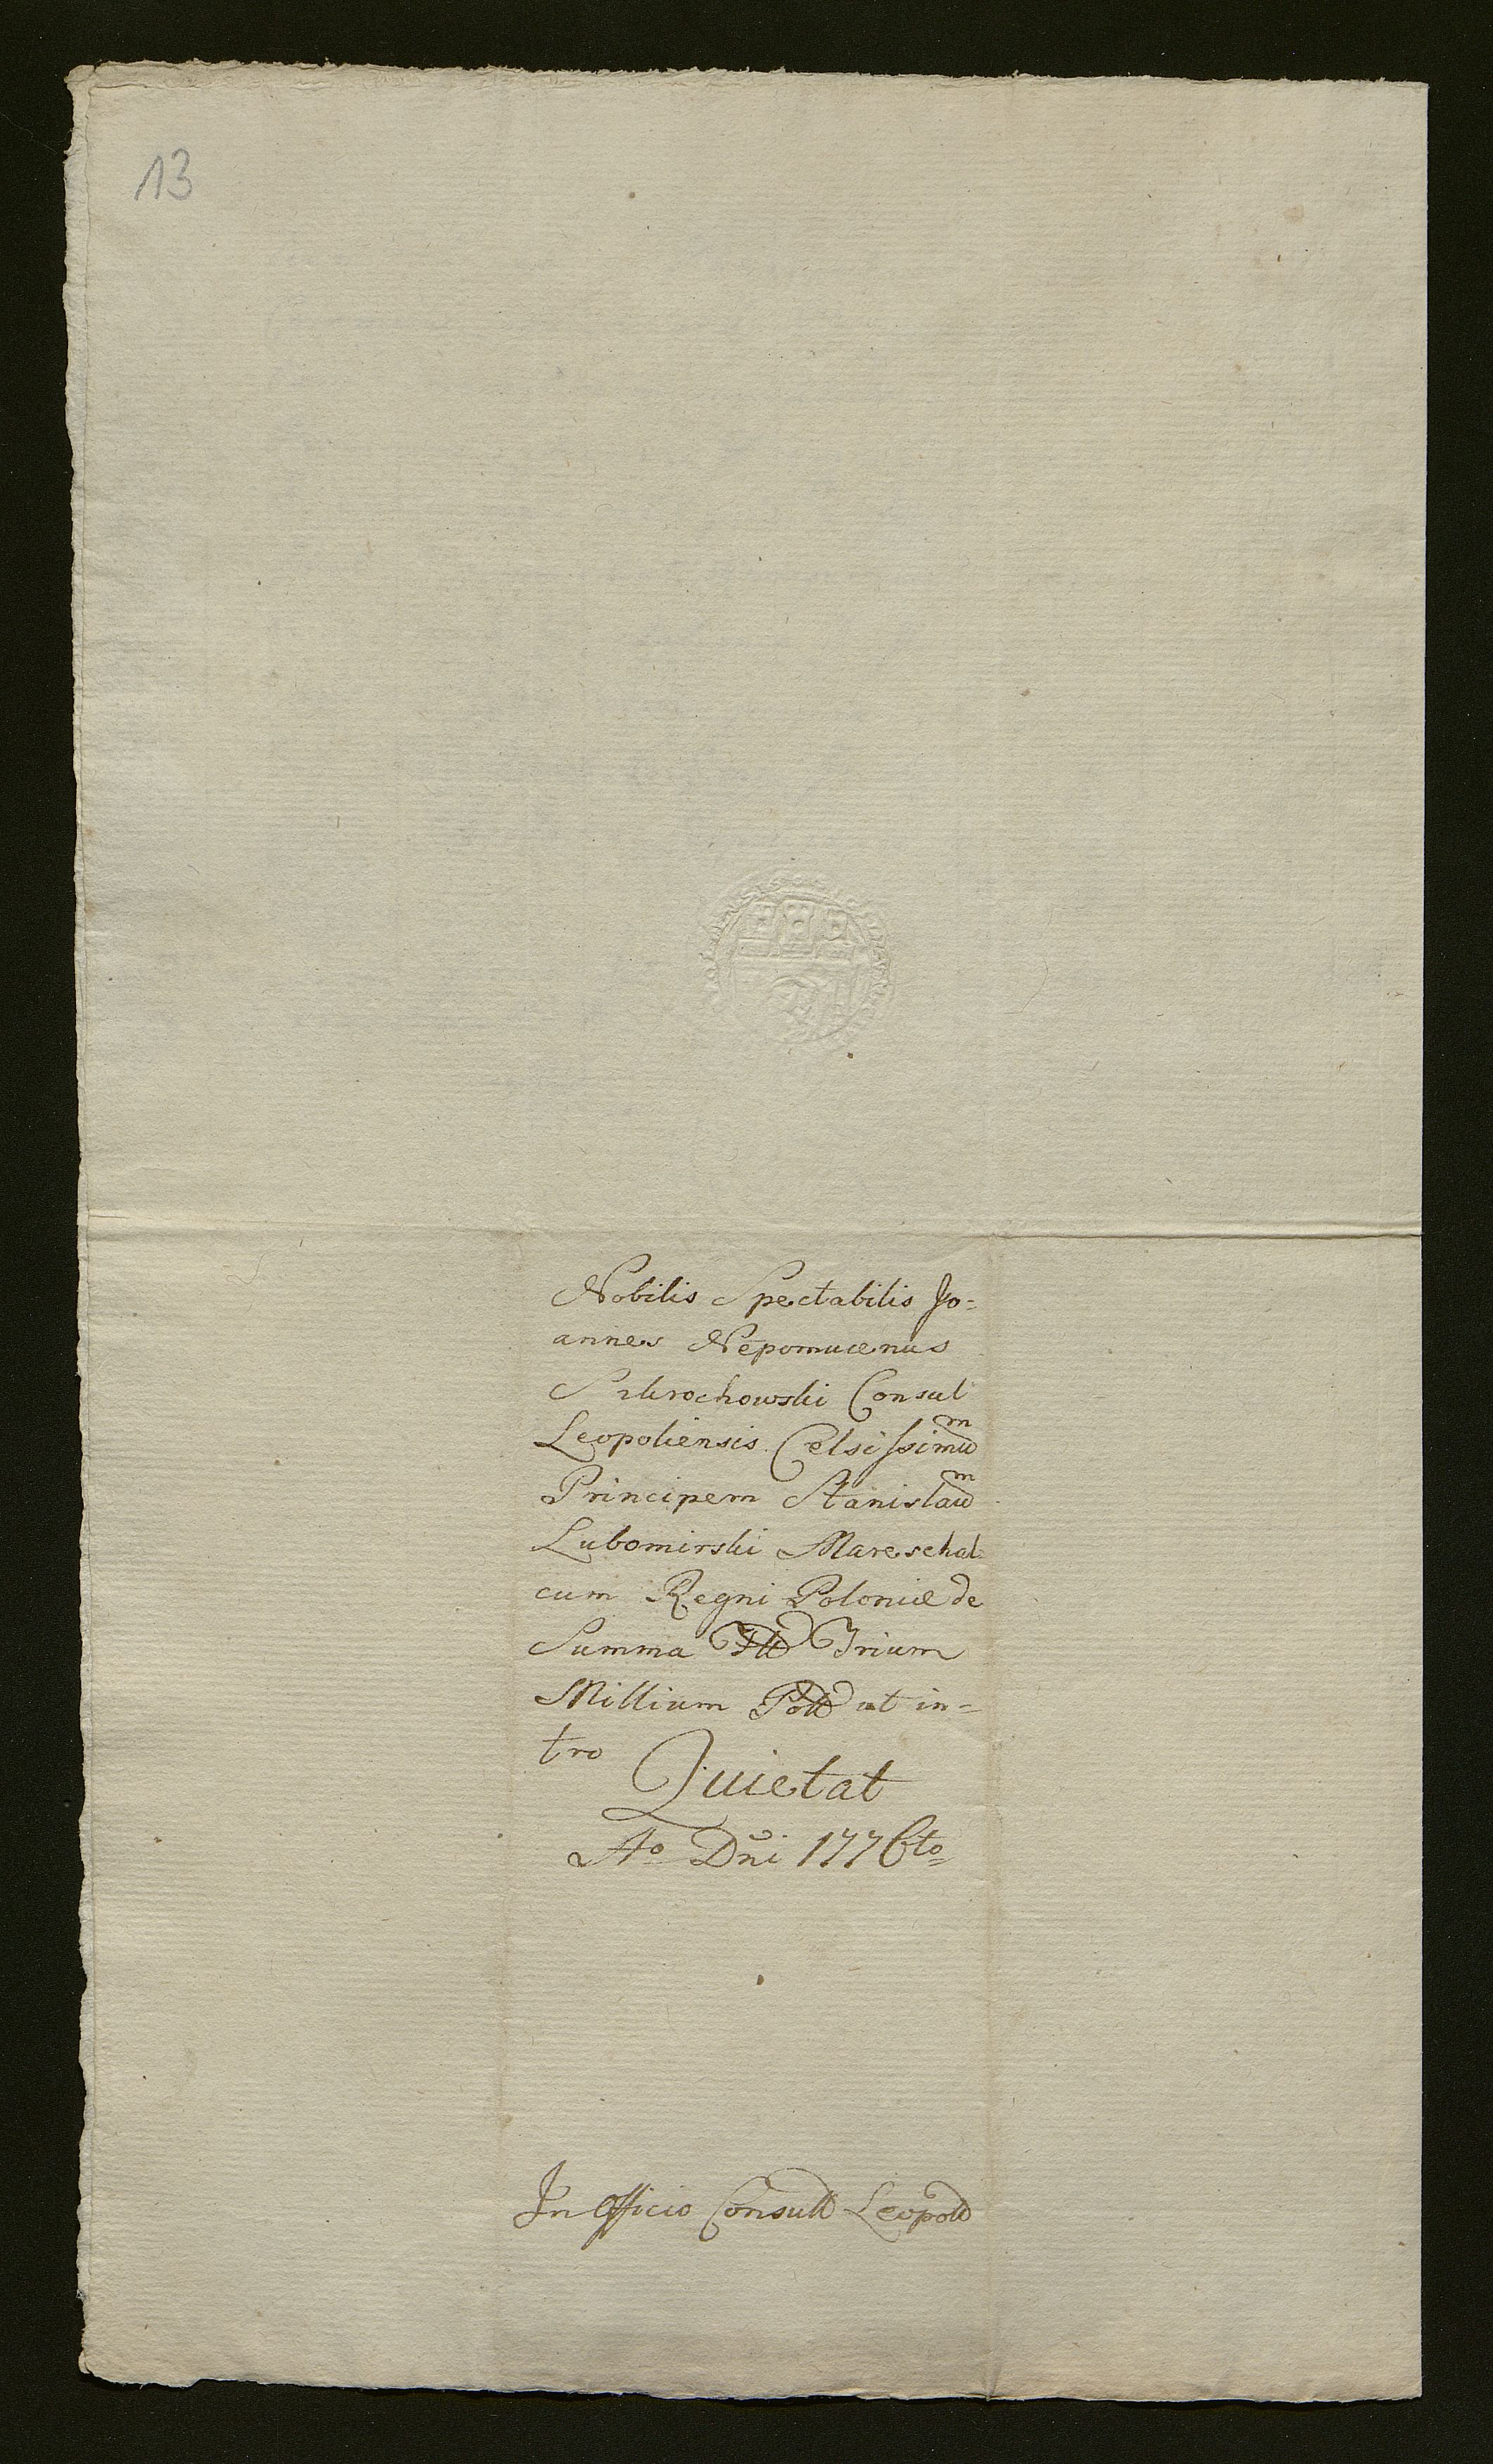 13
Nobilis Spectabilis Jo=
annes Nepomucenus
Consul
Leopoliensis Celsissimum
Principem Stanislaum
Lubomirski Mareschal
cum Regni Poloniæ de
Summa Trium
Millium Poll ut in=
tro
Quietat
Ao Dni 1776to
In Officio Consull Leopoll